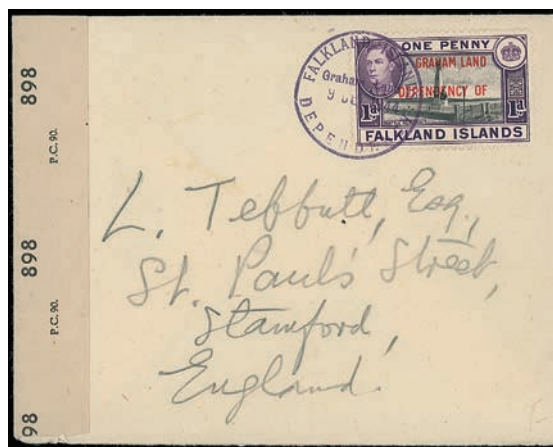 898
P.C. 90.
898
P.C. 90.
98
FALKLAND
Graham
9
DEPEND
ONE PENNY
GRAHAM LAND
DEPENDENCY OF
1d 1d
FALKLAND ISLANDS
L. Tebbutt, Esq.,
St. Paul's Street,
Stamford,
England.